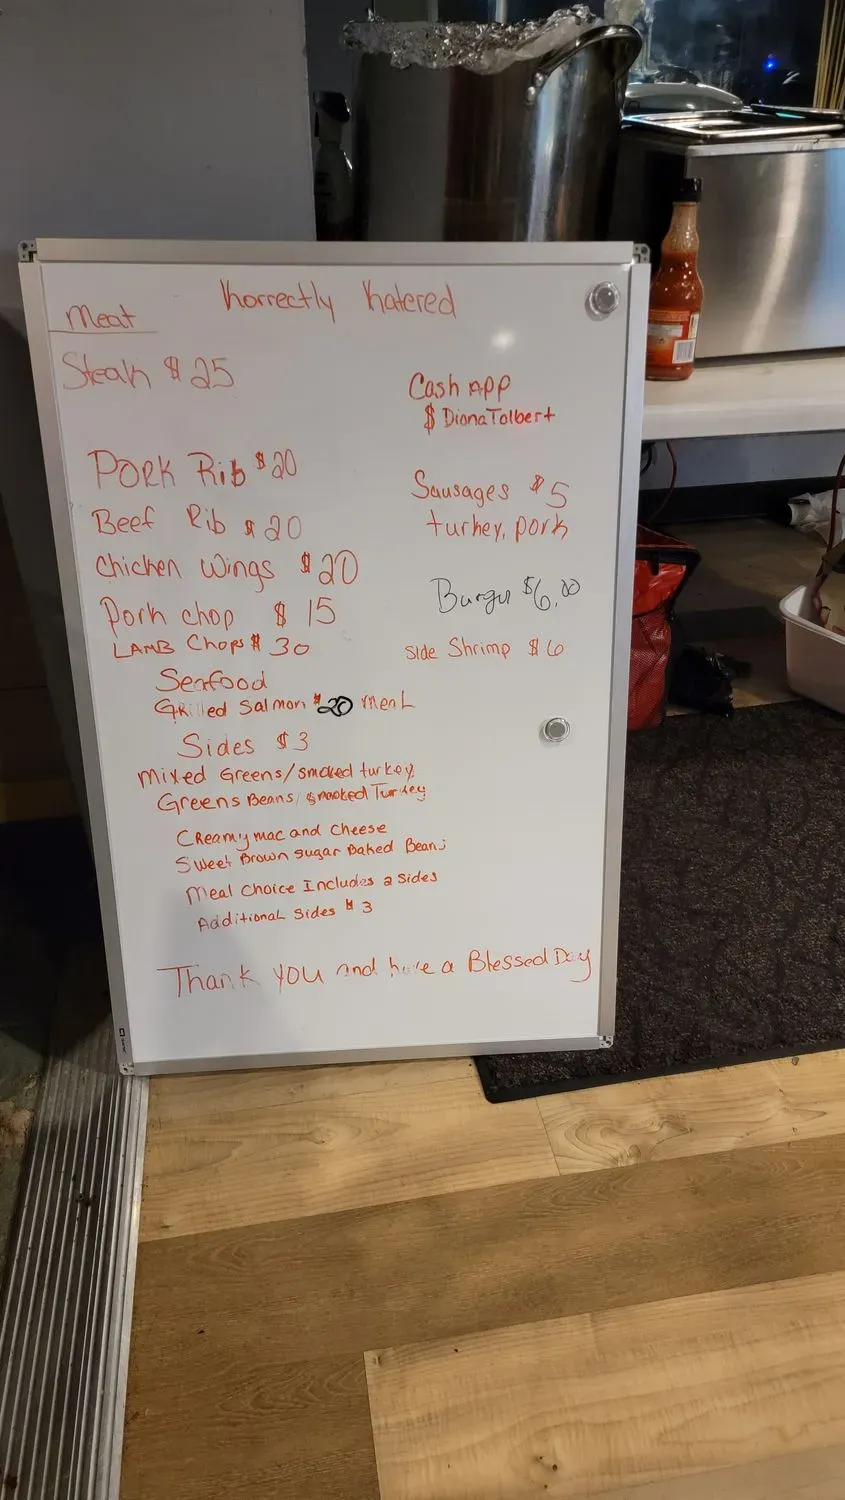 Korrectly Katered
Meat
Steak $25
Cash App
$DionaTolbert
Pork Rib $20
Sausages $5
turkey, pork
Beef Rib $20
Chicken Wings $20
Burger $6.00
Pork chop $15
LAMB Chops $30
Side Shrimp $6
Seafood
Grilled Salmon $20 meal
Sides $3
Mixed Greens/smoked turkey
Greens Beans/smoked Turkey
Creamy mac and Cheese
Sweet Brown sugar Baked Beans
Meal Choice Includes 2 Sides
Additional Sides $3
Thank you and have a Blessed Day